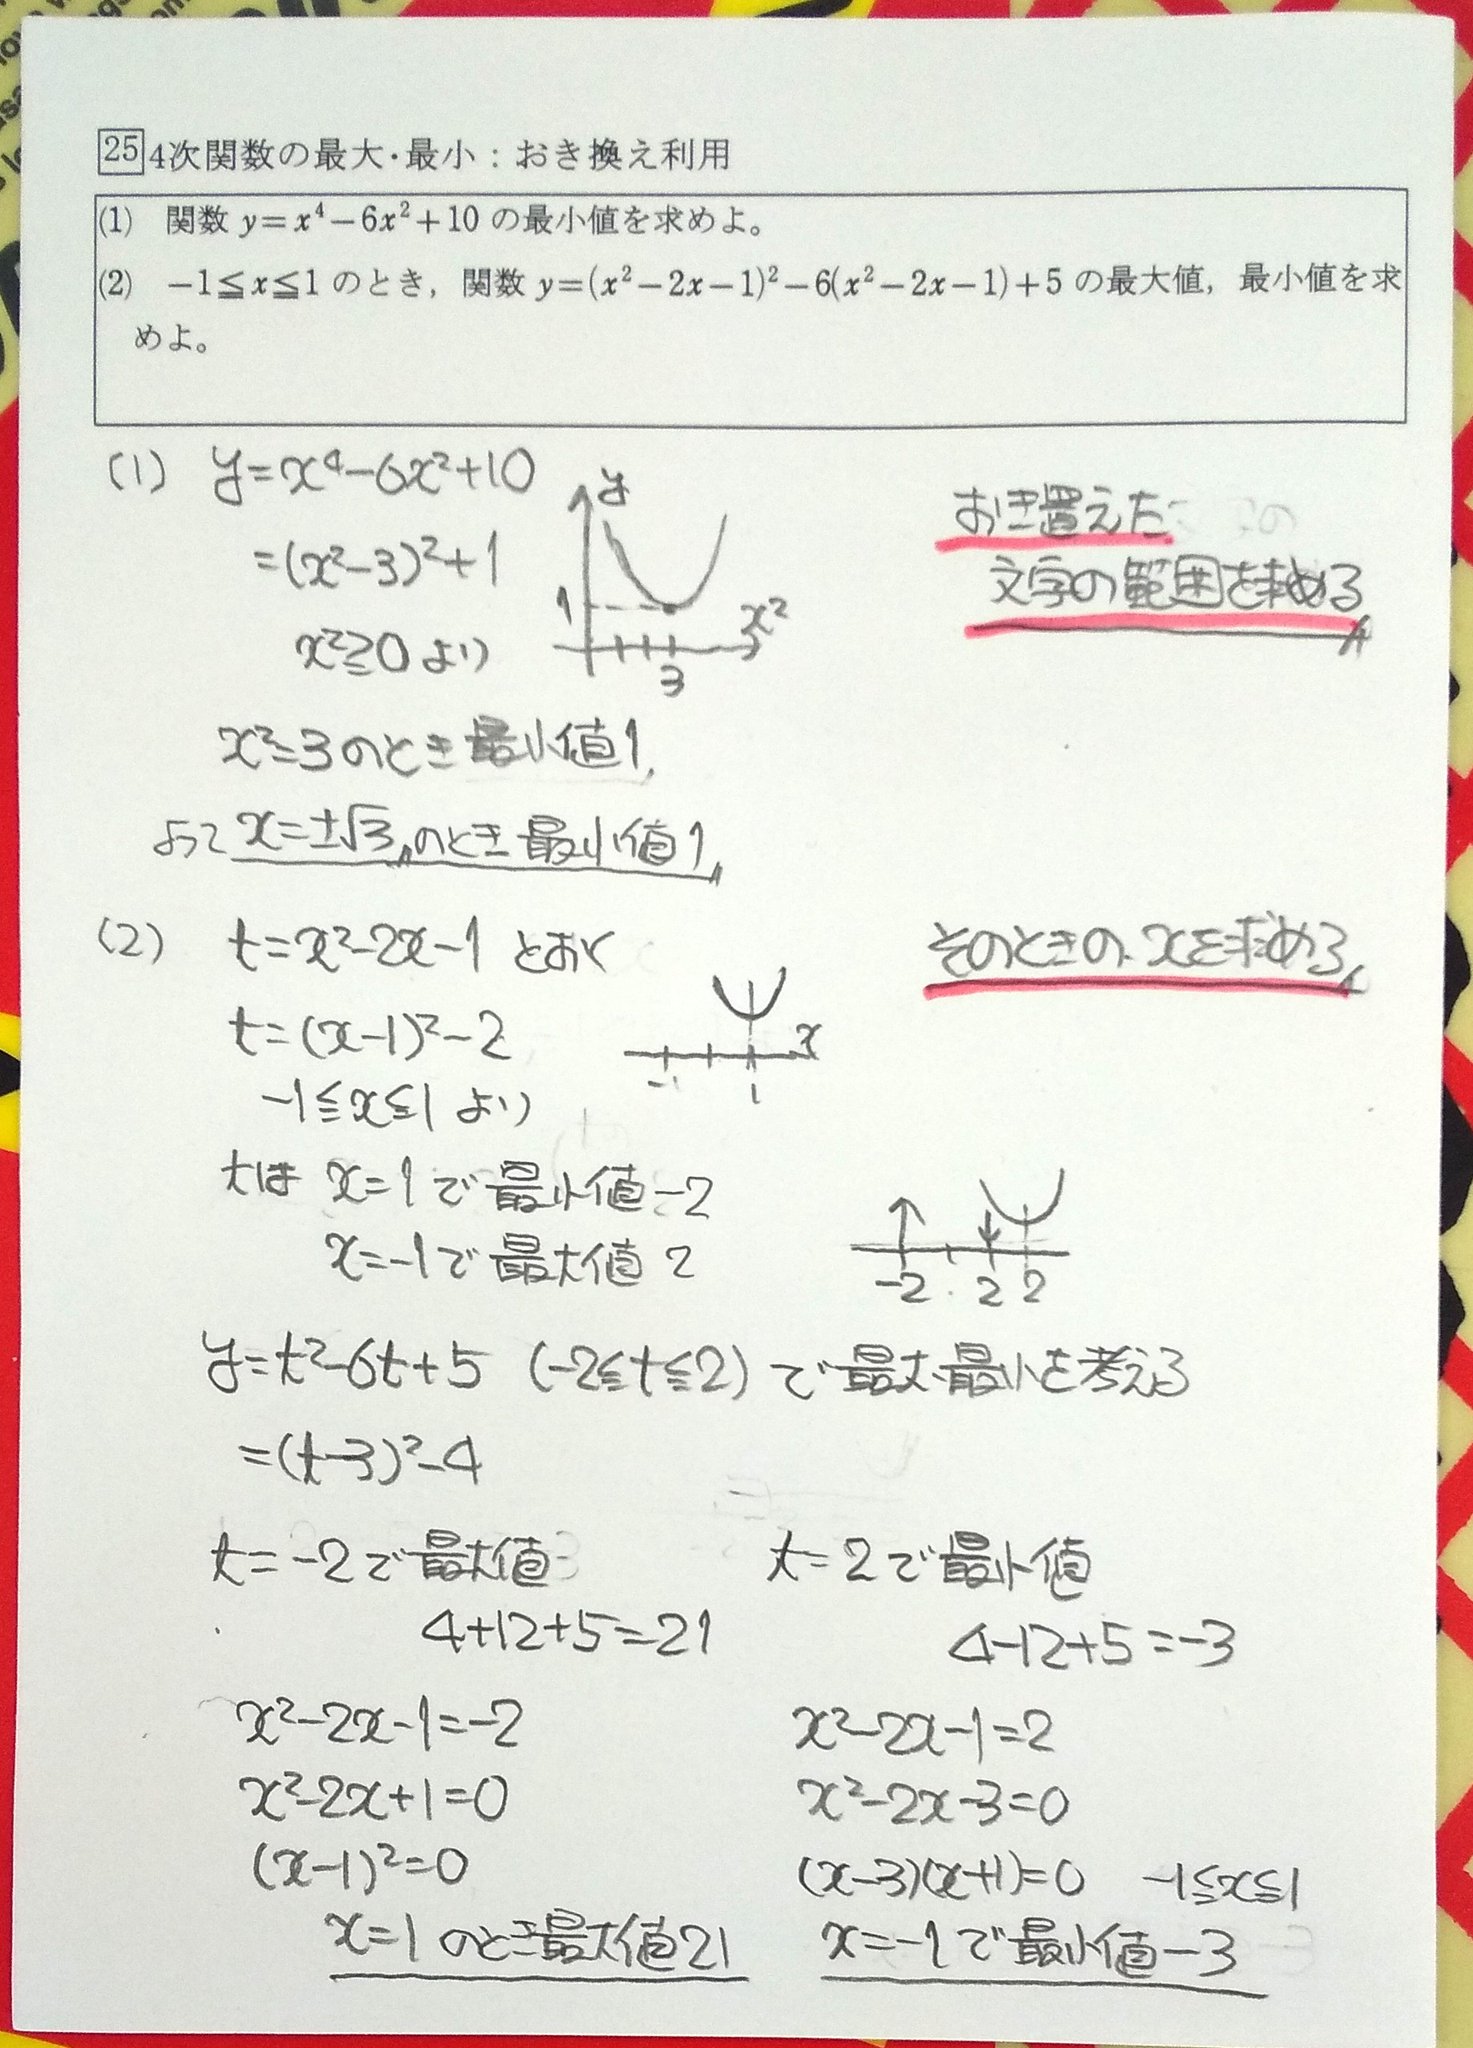 25 4次関数の最大・最小：おき換え利用
(1) 関数 y=x⁴−6x²+10 の最小値を求めよ。
(2) −1≦x≦1 のとき，関数 y=(x²−2x−1)²−6(x²−2x−1)+5 の最大値，最小値を求
めよ。
(1) y=x⁴−6x²+10
=(x²−3)²+1
x²≧0 より
y
1
3
x²
おき置えた
文字の範囲を求める
x²=3のとき最小値1
よって x=±√3 のとき最小値1
(2) t=x²−2x−1 とおく
そのときの xを求める
t=(x−1)²−2
x
−1
1
−1≦x≦1 より
tは x=1で最小値−2
x=−1で最大値 2
−2 2 2
y=t²−6t+5 (−2≦t≦2) で最大・最小を考える
=(t−3)²−4
t=−2で最大値
4+12+5=21
x²−2x−1=−2
x²−2x+1=0
(x−1)²=0
x=1のとき最大値21
t=2で最小値
4−12+5=−3
x²−2x−1=2
x²−2x−3=0
(x−3)(x+1)=0 −1≦x≦1
x=−1で最小値−3